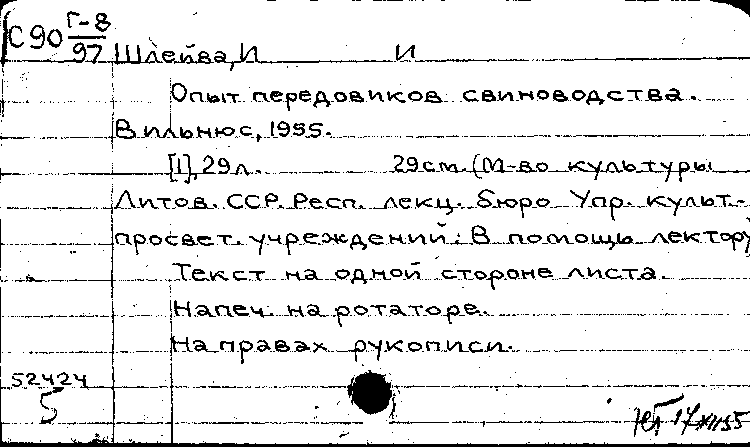 С90 Г-8/97
Шлейва, И И
Опыт передовиков свиноводства.
Вильнюс, 1955.
[1], 29л. 29см. (М-во культуры
Литов. ССР. Респ. лекц. бюро Упр. культ.-
просвет. учреждений: В помощь лектору
Текст на одной стороне листа.
Напеч. на ротаторе.
На правах рукописи.
52424
5